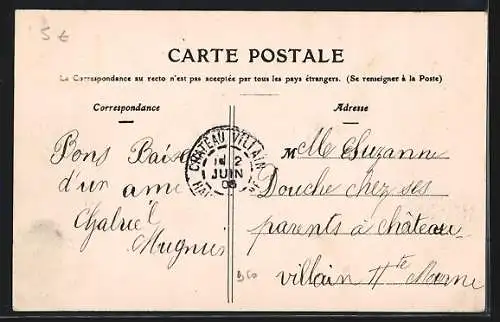 5 €
CARTE POSTALE
La Correspondance au recto n'est pas acceptée par tous les pays étrangers. (Se renseigner à la Poste)
Correspondance
Adresse
Bons Baise
d'un ami
Mugnier
CHATEAU VILLAIN
2
JUIN
05
M Melle Suzanne
Douche chez ses
parents à château
villain Hte Marne